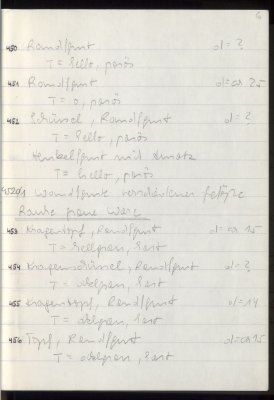 6
450 Randfgmt d = ?
T = hello, porös
451 Randfgmt d = ca 25
T = o, porös
452 Schüssel, Randfgmt d = ?
T = hello, porös
Henkelfgmt mit Ansatz
T = hello, porös
452a/1 Wandfgmte verschiedener Gefäße
Rauhe graue Ware
453 Kragentopf, Randfgmt d = ca 15
T = hellgrau, hart
454 Kragenschüssel, Randfgmt d = ?
T = dklgrau, hart
455 Kragentopf, Randfgmt d = 14
T = dklgrau, hart
456 Topf, Randfgmt d = ca 15
T = dklgrau, hart